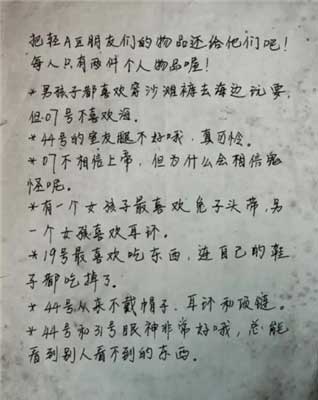 把轻A豆朋友们的物品还给他们吧！
每人只有两件个人物品喔！
*男孩子都喜欢穿沙滩裤去海边玩耍，
但07号不喜欢海。
*44号的室友腿不好哦，真可怜。
*07不相信上帝，但为什么会相信鬼
怪呢。
*有一个女孩子最喜欢兔子头带，另
一个女孩喜欢耳环。
*19号最喜欢吃东西，连自己的鞋
子都吃掉了。
*44号从来不戴帽子、耳环和项链。
*44号和31号眼神非常好哦，总能
看到别人看不到的东西。